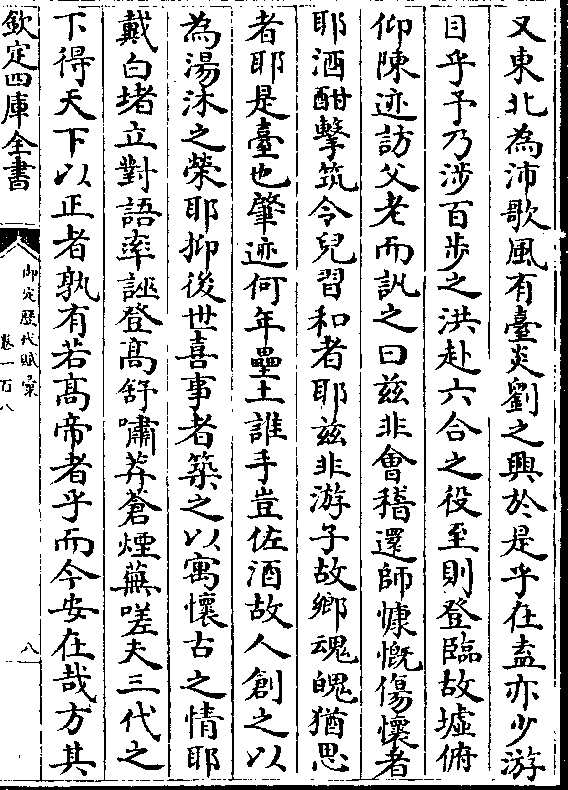 又東北為沛歌風有臺炎劉之興於是乎在盍亦少游
目乎予乃涉百步之洪赴六合之役至則登臨故墟俯
仰陳迹訪父老而訊之曰兹非會稽還師慷慨傷懷者
耶酒酣擊筑令兒習和者耶兹非游子故鄉魂魄猶思
者耶是臺也肇迹何年壘土誰手豈佐酒故人創之以
為湯沐之榮耶抑後世喜事者築之以寓懷古之情耶
戴白堵立對語率誣登高舒嘯莽蒼煙蕪嗟夫三代之
下得天下以正者孰有若高帝者乎而今安在哉方其
欽定四庫全書
御定歷代賦彙
卷一百八
八